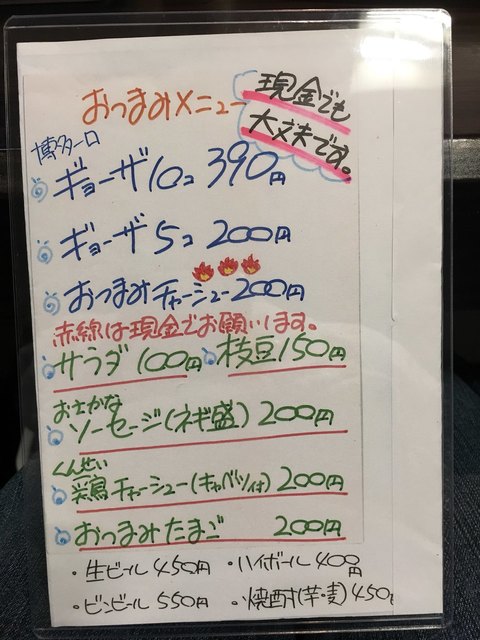 おつまみメニュー
現金でも
大丈夫です。
博多一口
ギョーザ10コ 390円
ギョーザ 5コ 200円
おつまみチャーシュー200円
赤線は現金でお願いします。
サラダ 100円 枝豆150円
おさかな
ソーセージ(ネギ盛) 200円
くんせい
鶏チャーシュー(キャベツ付) 200円
おつまみたまご 200円
・生ビール 450円 ・ハイボール 400円
・ビンビール 550円 ・焼酎(芋・麦) 450円